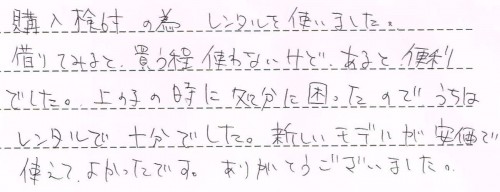 購入検討の為 レンタルを使いました。
借りてみると、買う程使わないけど、あると便利
でした。上の子の時に処分に困ったのでうちは
レンタルで十分でした。新しいモデルが安価で
使えて、よかったです。ありがとうございました。